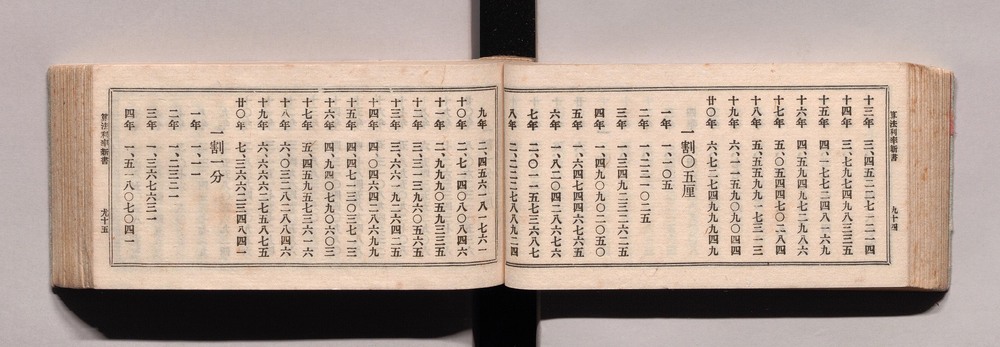 算法利率新書
九十四
十三年 三、四五二二七一二一四
十四年 三、七九七四九八三三五
十五年 四、一七七二四八一六九
十六年 四、五九四九七二九八六
十七年 五、〇五四四七〇二八四
十八年 五、五五九九一七三一三
十九年 六、一一五九〇九〇四四
廿〇年 六、七二七四九九九四九
一割〇五厘
一年 一、一〇五
二年 一、二二一〇二五
三年 一、三四九二三二六二五
四年 一、四九〇九〇二〇五〇
五年 一、六四七四四六七六五
六年 一、八二〇四二八六七六
七年 二、〇一一五七三六八七
八年 二、二二二七八八九二四
九年 二、四五六一八一七六一
十〇年 二、七一四〇八〇八四六
十一年 二、九九九〇五九三三五
十二年 三、三一三九六〇五六五
十三年 三、六六一九二六四二五
十四年 四、〇四六四二八六九九
十五年 四、四七一三〇三七一三
十六年 四、九四〇七九〇六〇三
十七年 五、四五九五七三六一六
十八年 六、〇三二八二八八四六
十九年 六、六六六二七五八七五
廿〇年 七、三六六二三四八四一
一割一分
一年 一、一一
二年 一、二三二一
三年 一、三六七六三一
四年 一、五一八〇七〇四一
算法利率新書
九十五